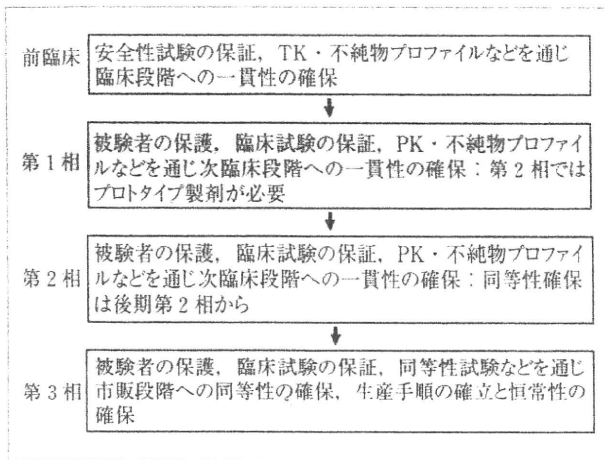 前臨床
安全性試験の保証，TK・不純物プロファイルなどを通じ
臨床段階への一貫性の確保
第1相
被験者の保護，臨床試験の保証，PK・不純物プロファイ
ルなどを通じ次臨床段階への一貫性の確保：第2相では
プロトタイプ製剤が必要
第2相
被験者の保護，臨床試験の保証，PK・不純物プロファイ
ルなどを通じ次臨床段階への一貫性の確保：同等性確保
は後期第2相から
第3相
被験者の保護，臨床試験の保証，同等性試験などを通じ
市販段階への同等性の確保，生産手順の確立と恒常性の
確保